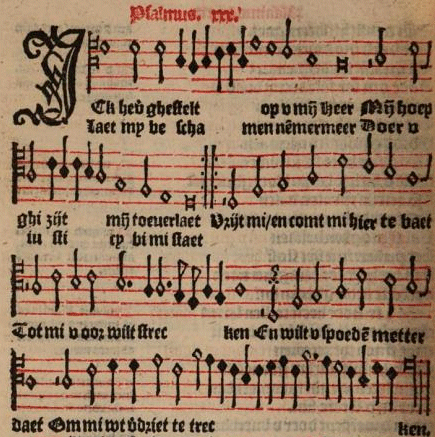 Psalmus. xxx.
ICk heb ghestelt op v mij Heer Mijn hoep
Laet my be scha men nēmermeer Doer v
ghi zijt mij toeverlaet Vrijt mi/en comt mi hier te baet
iu sti cy bi mi staet
Tot mi v oor wilt strec ken En wilt v spoedē metter
daet Om mi wt vdriet te trec ken.